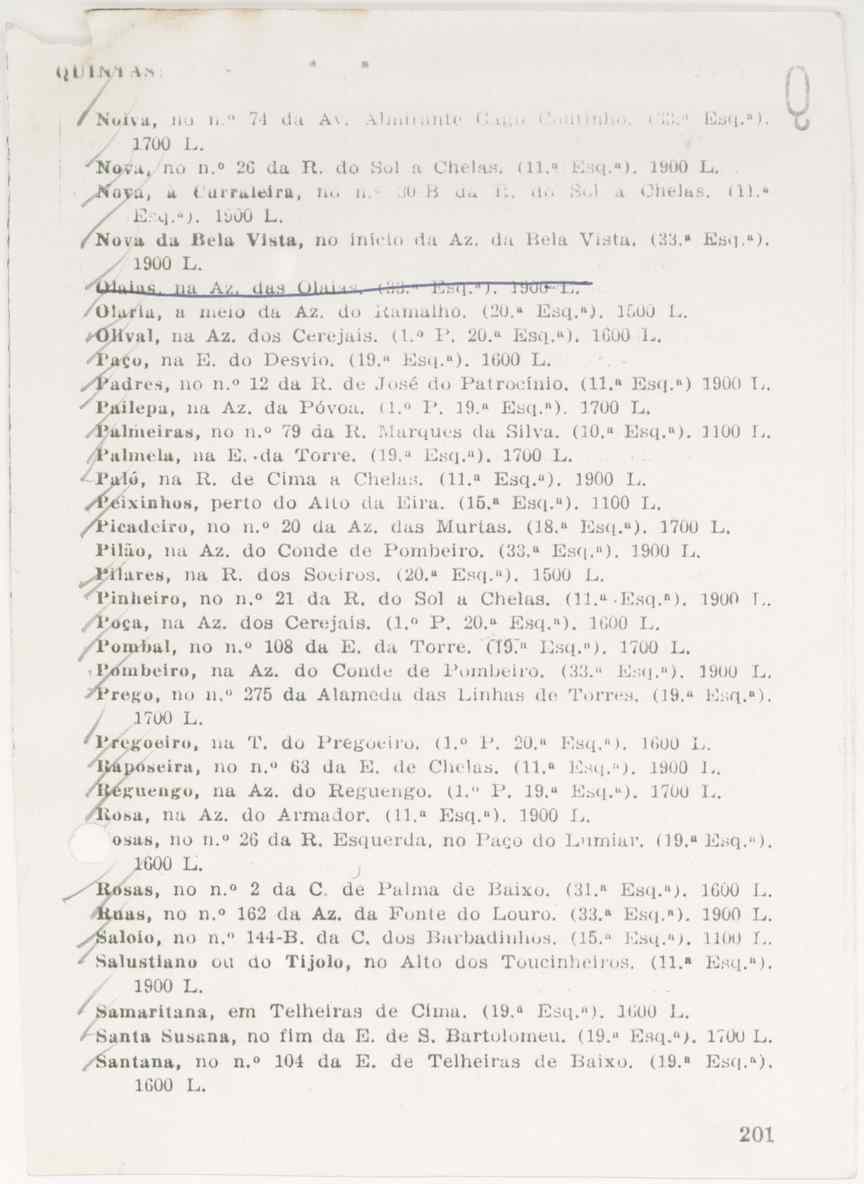 QUINTAS
Q
Noiva, no n.º 74 da Av. Almirante Gago Coutinho. (33.ª Esq.ª).
1700 L.
Nova, no n.º 26 da R. do Sol a Chelas. (11.ª Esq.ª). 1900 L.
Nova, à Curraleira, no n.º 30-B da R. do Sol a Chelas. (11.ª
Esq.ª). 1900 L.
Nova da Bela Vista, no início da Az. da Bela Vista. (33.ª Esq.ª).
1900 L.
Olaias, na Az. das Olaias. (33.ª Esq.ª). 1900 L.
Olaria, a meio da Az. do Ramalho. (20.ª Esq.ª). 1500 L.
Olival, na Az. dos Cerejais. (1.º P. 20.ª Esq.ª). 1600 L.
Paço, na E. do Desvio. (19.ª Esq.ª). 1600 L.
Padres, no n.º 12 da R. de José do Patrocínio. (11.ª Esq.ª) 1900 L.
Pailepa, na Az. da Póvoa. (1.º P. 19.ª Esq.ª). 1700 L.
Palmeiras, no n.º 79 da R. Marques da Silva. (10.ª Esq.ª). 1100 L.
Palmela, na E. da Torre. (19.ª Esq.ª). 1700 L.
Paló, na R. de Cima a Chelas. (11.ª Esq.ª). 1900 L.
Peixinhos, perto do Alto da Eira. (15.ª Esq.ª). 1100 L.
Picadeiro, no n.º 20 da Az. das Murtas. (18.ª Esq.ª). 1700 L.
Pilão, na Az. do Conde de Pombeiro. (33.ª Esq.ª). 1900 L.
Pilares, na R. dos Soeiros. (20.ª Esq.ª). 1500 L.
Pinheiro, no n.º 21 da R. do Sol a Chelas. (11.ª Esq.ª). 1900 L.
Poça, na Az. dos Cerejais. (1.º P. 20.ª Esq.ª). 1600 L.
Pombal, no n.º 108 da E. da Torre. (19.ª Esq.ª). 1700 L.
Pombeiro, na Az. do Conde de Pombeiro. (33.ª Esq.ª). 1900 L.
Prego, no n.º 275 da Alameda das Linhas de Torres. (19.ª Esq.ª).
1700 L.
Pregoeiro, na T. do Pregoeiro. (1.º P. 20.ª Esq.ª). 1600 L.
Raposeira, no n.º 63 da E. de Chelas. (11.ª Esq.ª). 1900 L.
Reguengo, na Az. do Reguengo. (1.º P. 19.ª Esq.ª). 1700 L.
Rosa, na Az. do Armador. (11.ª Esq.ª). 1900 L.
osas, no n.º 26 da R. Esquerda, no Paço do Lumiar. (19.ª Esq.ª).
1600 L.
Rosas, no n.º 2 da C. de Palma de Baixo. (31.ª Esq.ª). 1600 L.
Ruas, no n.º 162 da Az. da Fonte do Louro. (33.ª Esq.ª). 1900 L.
Saloio, no n.º 144-B. da C. dos Barbadinhos. (15.ª Esq.ª). 1100 L.
Salustiano ou do Tijolo, no Alto dos Toucinheiros. (11.ª Esq.ª).
1900 L.
Samaritana, em Telheiras de Cima. (19.ª Esq.ª). 1600 L.
Santa Susana, no fim da E. de S. Bartolomeu. (19.ª Esq.ª). 1700 L.
Santana, no n.º 104 da E. de Telheiras de Baixo. (19.ª Esq.ª).
1600 L.
201